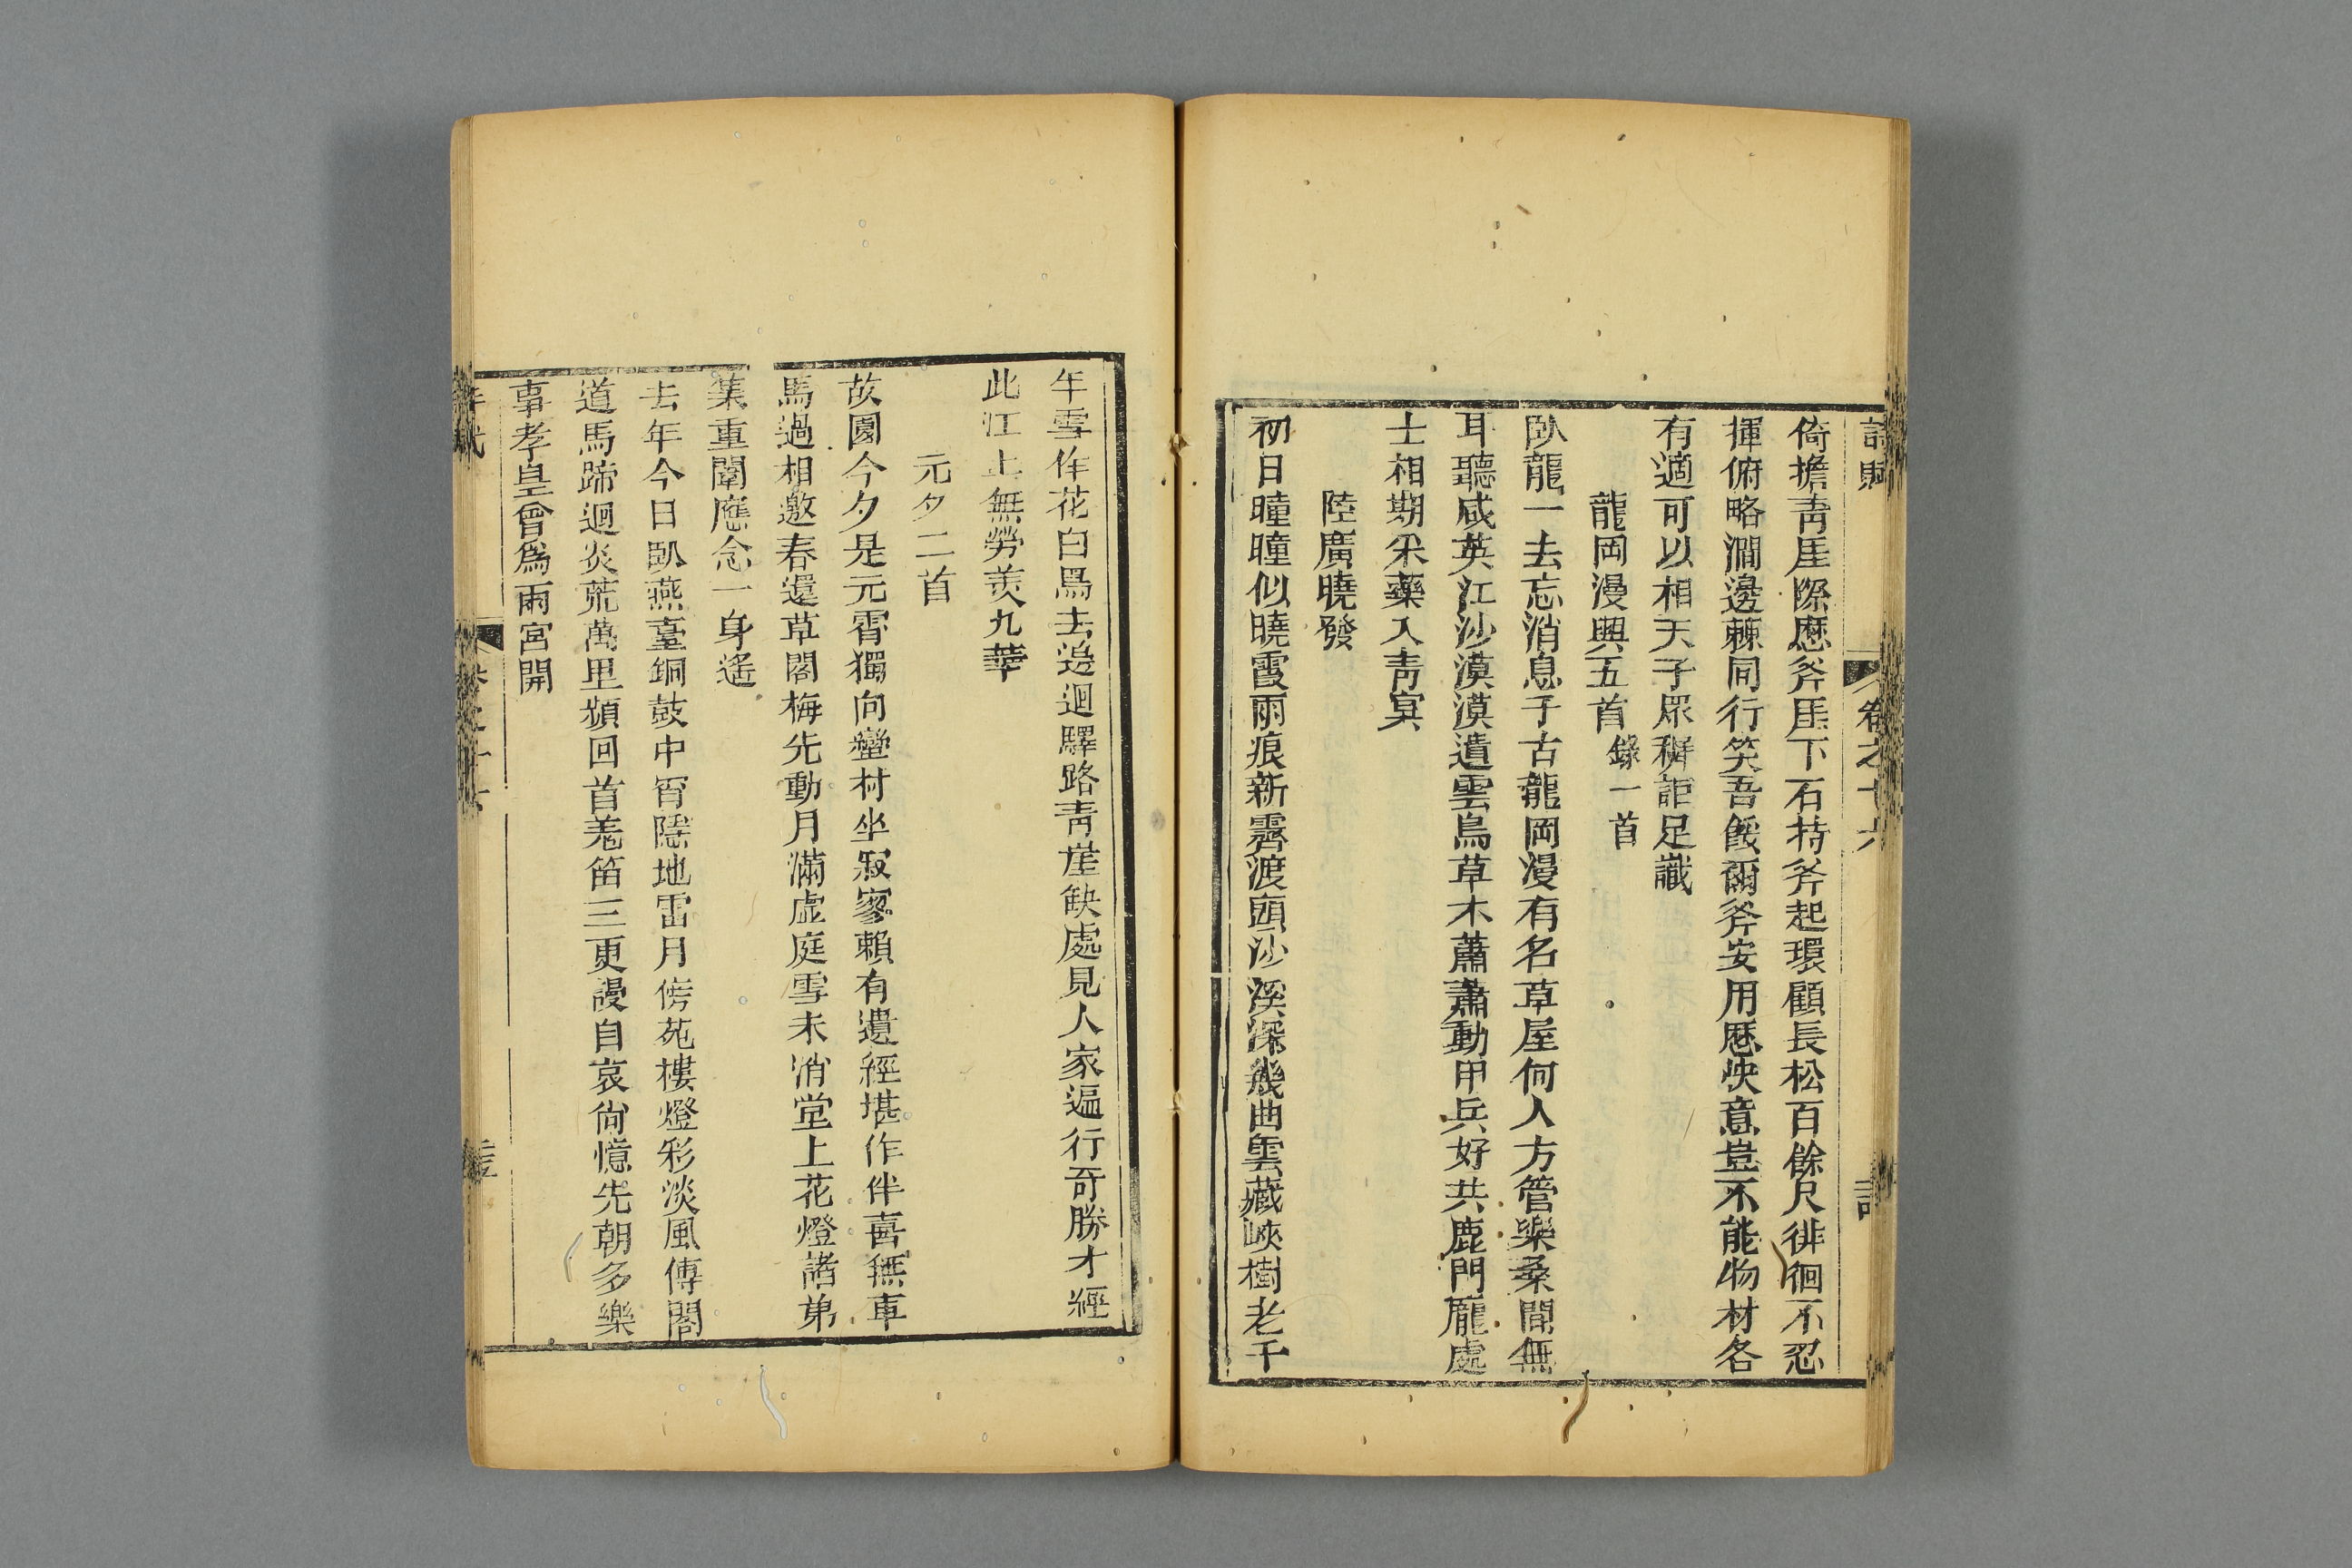 倚擔青厓際厯斧厓下石持斧起環顧長松百餘尺徘徊不忍
揮俯略澗邊蕀同行笑吾餒爾斧安用厯怏意豈不能物材各
有適可以相天子眾穉詎足讖
龍岡漫興五首錄一首
臥龍一去忘消息千古龍岡漫有名草屋何人方管樂桑間無
耳聽咸英江沙漠漠遺雲鳥草木蕭蕭動甲兵好共鹿門龐處
士相期采藥入青冥
陸廣曉發
初日曈曈似曉霞雨痕新霽渡頭沙溪深幾曲雲藏峽樹老千
年雪作花白鳥去邊迴驛路青崖缺處見人家遍行奇勝才經
此江上無勞羨九華
元夕二首
故園今夕是元霄獨向蠻村坐寂寥賴有遺經堪作伴喜無車
馬過相邀春還草閣梅先動月滿虛庭雪未消堂上花燈諸弟
集重闈應念一身遙
去年今日臥燕臺銅鼓中宵隱地雷月傍苑樓燈彩淡風傳閣
道馬蹄迴炎荒萬里頻回首羌笛三更謾自哀尙憶先朝多樂
事孝皇曾爲兩宮開